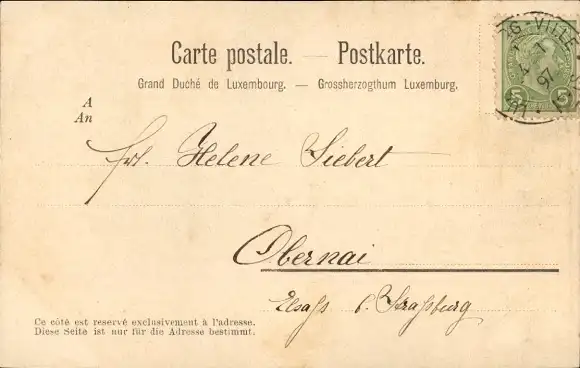 Carte postale. — Postkarte.
Grand Duché de Luxembourg. — Grossherzogthum Luxemburg.
A
An
Frl. Helene Siebert
Obernai
Elsaß b. Straßburg
Ce côté est reservé exclusivement à l'adresse.
Diese Seite ist nur für die Adresse bestimmt.
5 5
RG-VILLE
1
97